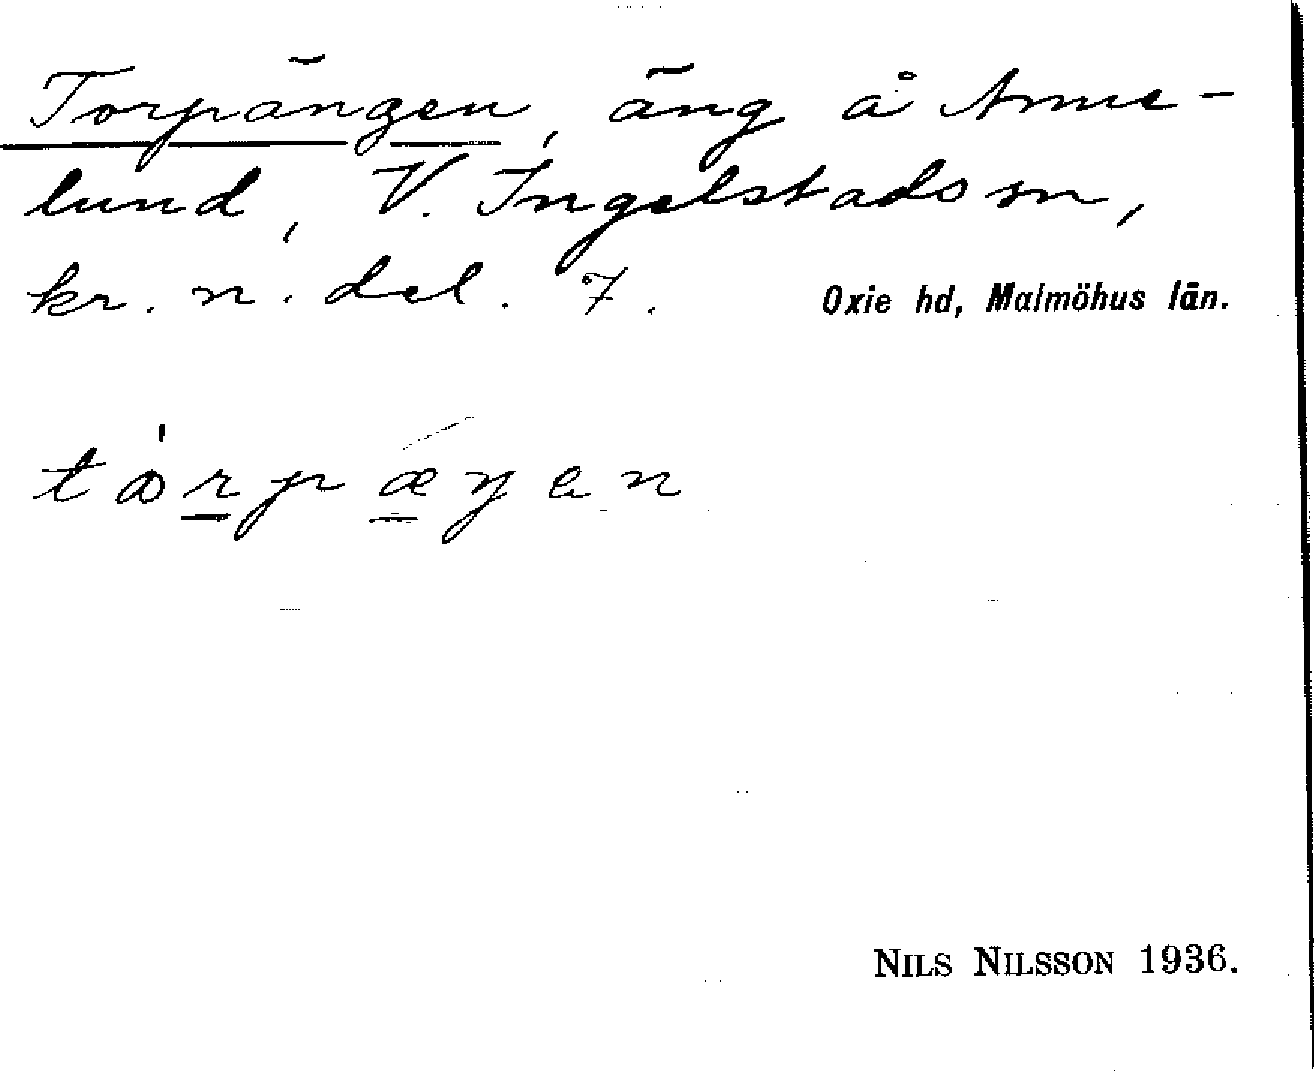 Torpängen, äng å Anne-
lund, V. Ingelstads sn,
kr. n. del. 7. Oxie hd, Malmöhus län.
tɷrpæŋen
NILS NILSSON 1936.